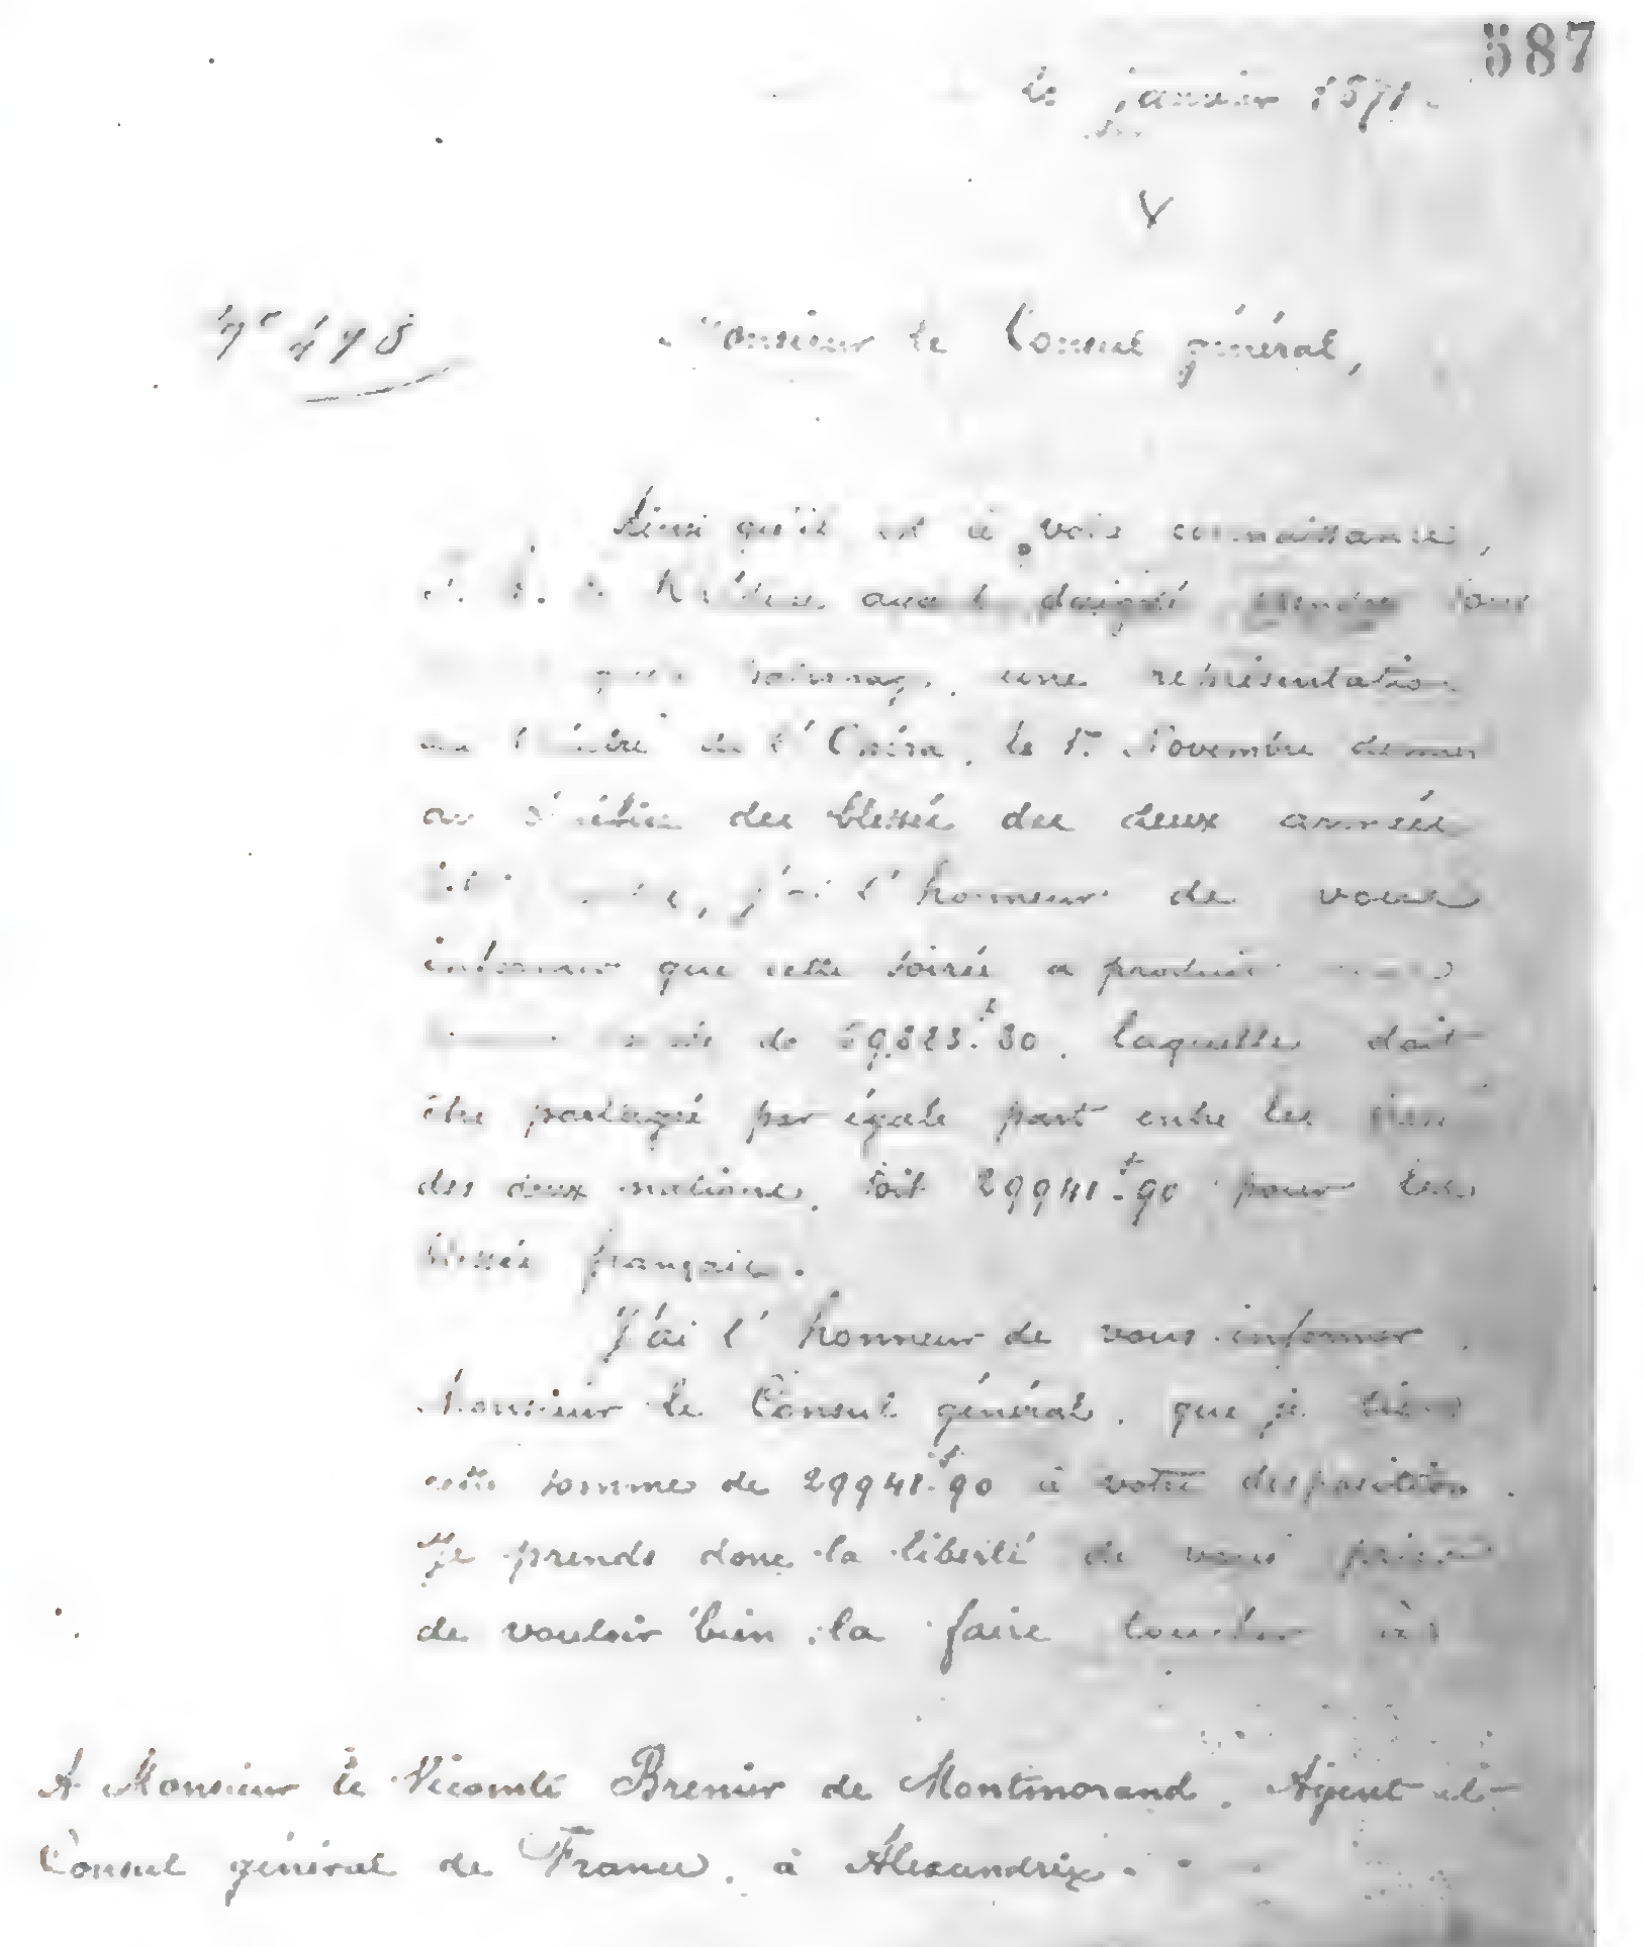 587
le janvier 1871.
Nº 498
Monsieur le Consul général,
Ainsi qu'il est à votre connaissance,
le Khédive ayant daigné prendre sous
patronage, une représentation
au Théâtre de l'Opéra, le 1er Novembre dernier
au bénéfice des blessés des deux armées
j'ai l'honneur de vous
informer que cette soirée a produit
de 59,883.f80, laquelle doit
être partagée par égale part entre les
des deux nations, soit 29941.f90 pour les
blessés français.
J'ai l'honneur de vous informer,
Monsieur le Consul général, que je tiens
cette somme de 29941.f90 à votre disposition.
Je prends donc la liberté de vous prier
de vouloir bien la faire toucher à
A Monsieur le Vicomte Brenier de Montmorand, Agent et
Consul général de France, à Alexandrie.